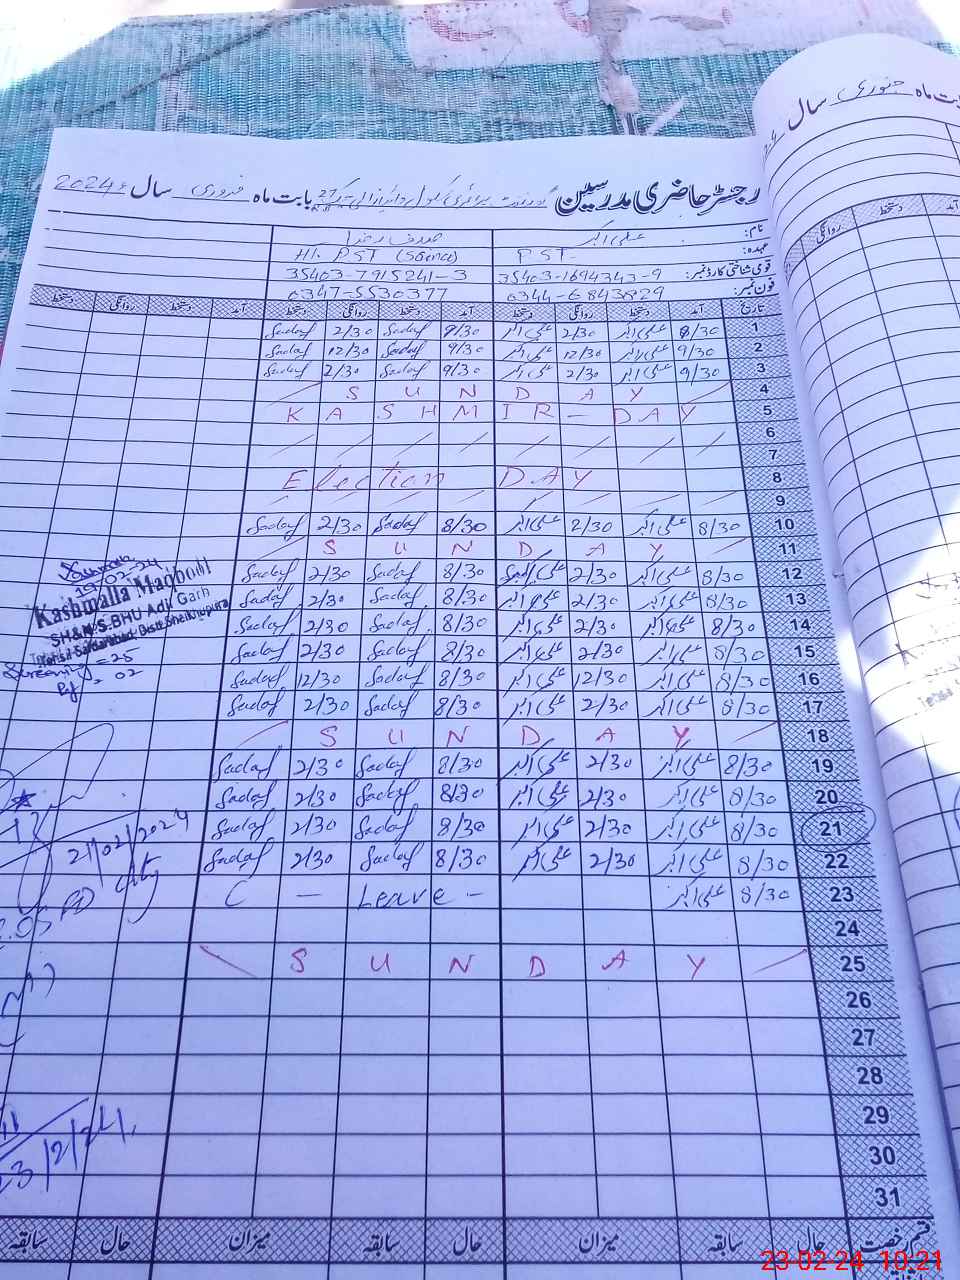 رجسٹر حاضری مدرسین گورنمنٹ پرائمری سکول بابت ماہ فروری سال 2024ء
نام: علی اکبر صدف رضا
عہدہ: PST- H/. PST (Science)
قومی شناختی کارڈ نمبر: 35403-1694343-9 35403-7915241-3
فون نمبر: 0344-6843829 0347-5530377
تاریخ آمد دستخط روانگی دستخط آمد دستخط روانگی دستخط آمد دستخط روانگی دستخط
1 8/30 علی اکبر 2/30 علی اکبر 9/30 Sadaf 2/30 Sadaf
2 9/30 علی اکبر 12/30 علی اکبر 9/30 Sadaf 12/30 Sadaf
3 9/30 علی اکبر 2/30 علی اکبر 9/30 Sadaf 2/30 Sadaf
4 SUNDAY
5 KASHMIR - DAY
6
7
8 Election DAY
9
10 8/30 علی اکبر 2/30 علی اکبر 8/30 Sadaf 2/30 Sadaf
11 SUNDAY
12 8/30 علی اکبر 2/30 علی اکبر 8/30 Sadaf 2/30 Sadaf
13 8/30 علی اکبر 2/30 علی اکبر 8/30 Sadaf 2/30 Sadaf
14 8/30 علی اکبر 2/30 علی اکبر 8/30 Sadaf 2/30 Sadaf
15 8/30 علی اکبر 2/30 علی اکبر 8/30 Sadaf 2/30 Sadaf
16 8/30 علی اکبر 12/30 علی اکبر 8/30 Sadaf 12/30 Sadaf
17 8/30 علی اکبر 2/30 علی اکبر 8/30 Sadaf 2/30 Sadaf
18 SUNDAY
19 8/30 علی اکبر 2/30 علی اکبر 8/30 Sadaf 2/30 Sadaf
20 8/30 علی اکبر 2/30 علی اکبر 8/30 Sadaf 2/30 Sadaf
21 8/30 علی اکبر 2/30 علی اکبر 8/30 Sadaf 2/30 Sadaf
22 8/30 علی اکبر 2/30 علی اکبر 8/30 Sadaf 2/30 Sadaf
23 8/30 علی اکبر C — Leave -
24
25 SUNDAY
26
27
28
29
30
31
قسم رخصت حال سابقہ میزان حال سابقہ میزان حال سابقہ
19-02-24
Kashmalla Maqbool
SH&N.S.BHU Adil Garh
Tehsil Safdarabad Distt Sheikhupura
Screening = 25
Ref = 02
21/02/2024
23/2/24
بابت ماہ جنوری سال
آمد دستخط روانگی
23-02-24 10:21